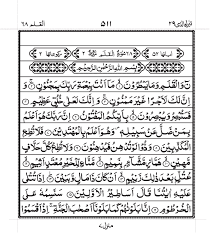 القلم ٦٨
٥١١
تبٰرك الذى ٢٩
اٰياتها ٥٢
ركوعاتها ٢
بِسْمِ اللّٰهِ الرَّحْمٰنِ الرَّحِيْمِ
نٓ وَالْقَلَمِ وَمَا يَسْطُرُوْنَ ۝ مَآ اَنْتَ بِنِعْمَةِ رَبِّكَ بِمَجْنُوْنٍ ۝ وَ
اِنَّ لَكَ لَاَجْرًا غَيْرَ مَمْنُوْنٍ ۝ وَاِنَّكَ لَعَلٰى خُلُقٍ عَظِيْمٍ ۝
فَسَتُبْصِرُ وَيُبْصِرُوْنَ ۝ بِاَىيِّكُمُ الْمَفْتُوْنُ ۝ اِنَّ رَبَّكَ هُوَ اَعْلَمُ
بِمَنْ ضَلَّ عَنْ سَبِيْلِهٖ ۪ وَهُوَ اَعْلَمُ بِالْمُهْتَدِيْنَ ۝ فَلَا تُطِعِ
الْمُكَذِّبِيْنَ ۝ وَدُّوْا لَوْ تُدْهِنُ فَيُدْهِنُوْنَ ۝ وَلَا تُطِعْ كُلَّ حَلَّافٍ
مَّهِيْنٍ ۝ هَمَّازٍ مَّشَّآءٍۭ بِنَمِيْمٍ ۝ مَّنَّاعٍ لِّلْخَيْرِ مُعْتَدٍ اَثِيْمٍ ۝
عُتُلٍّۭ بَعْدَ ذٰلِكَ زَنِيْمٍ ۝ اَنْ كَانَ ذَا مَالٍ وَّبَنِيْنَ ۝ اِذَا تُتْلٰى
عَلَيْهِ اٰيٰتُنَا قَالَ اَسَاطِيْرُ الْاَوَّلِيْنَ ۝ سَنَسِمُهٗ عَلَى
الْخُرْطُوْمِ ۝ اِنَّا بَلَوْنٰهُمْ كَمَا بَلَوْنَآ اَصْحٰبَ الْجَنَّةِ ۚ اِذْ اَقْسَمُوْا
منزل ٧